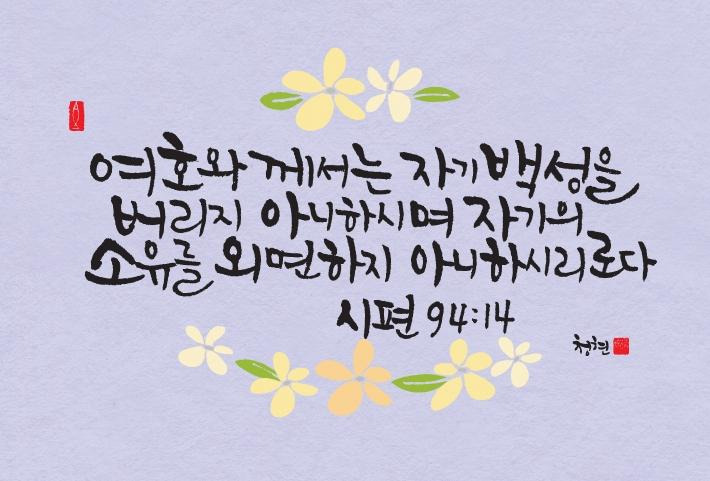 여호와 께서는 자기 백성을
버리지 아니하시며 자기의
소유를 외면하지 아니하시리로다
시편 94:14
청현